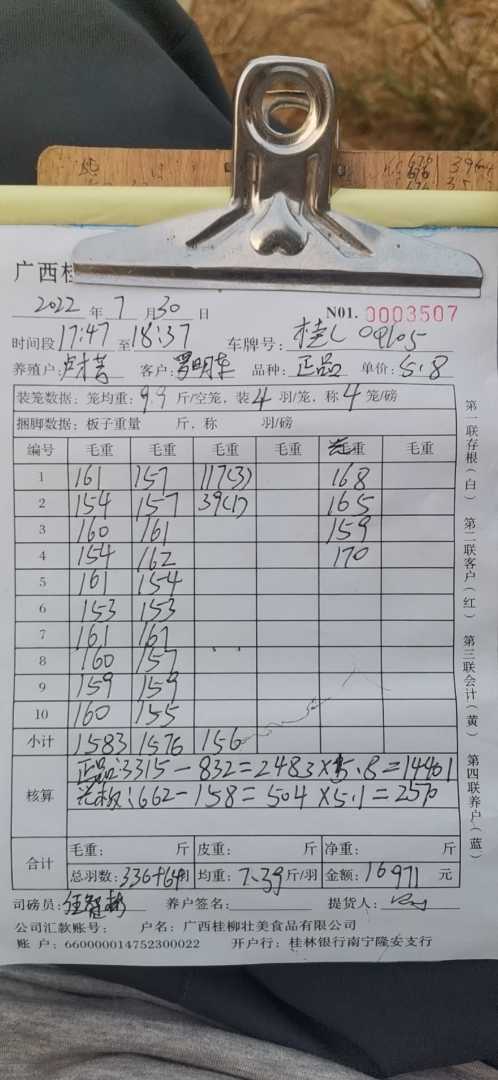 676 39
676 35
广西桂
2022 年 7 月 30 日 N01. 0003507
时间段 17:47 至 18:37 车牌号: 桂L 09105
养殖户: 客户: 罗明华 品种: 正品 单价: 5.8
装笼数据: 笼均重: 9.9 斤/空笼, 装 4 羽/笼, 称 4 笼/磅
捆脚数据: 板子重量 斤, 称 羽/磅
编号 毛重 毛重 毛重 毛重 毛重 毛重
1 161 157 117(3) 168
2 154 157 39(1) 165
3 160 161 159
4 154 162 170
5 161 154
6 153 153
7 161 161
8 160 157
9 159 159
10 160 155
小计 1583 1576 156
核算 正品:3315-832=2483×5.8=14401
:662-158=504×5.1=2570
合计 毛重: 斤 皮重: 斤 净重: 斤
总羽数: 336+64羽 均重: 7.39 斤/羽 金额: 16971 元
司磅员: 养户签名: 提货人:
公司汇款账号: 户名: 广西桂柳壮美食品有限公司
账 户: 660000014752300022 开户行: 桂林银行南宁隆安支行
第一联存根(白) 第二联客户(红) 第三联会计(黄) 第四联养户(蓝)